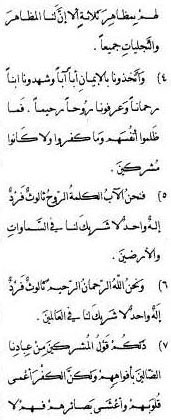 لهم بمظاهر ثلاثة ألا إن لنا المظاهر
والتجليات جميعاً .
٤) واتخذونا بالإيمان أباً آباً وشهدونا ابناً
رحماناً وعرفونا روحاً رحيماً . فما
ظلموا أنفسهم وما كفروا ولا كانوا
مشركين .
٥) فنحن الآب الكلمة الروح ثالوث فرد
إله واحد لا شريك لنا في السماوات
والأرضين .
٦) ونحن الله الرحمان الرحيم ثالوث فرد
إله واحد لا شريك لنا في العالمين .
٧) ذلكم قول المشركين من عبادنا
الضالين بأفواههم ولكن الكفر أعمى
قلوبهم وأغشى بصائرهم فهم لا